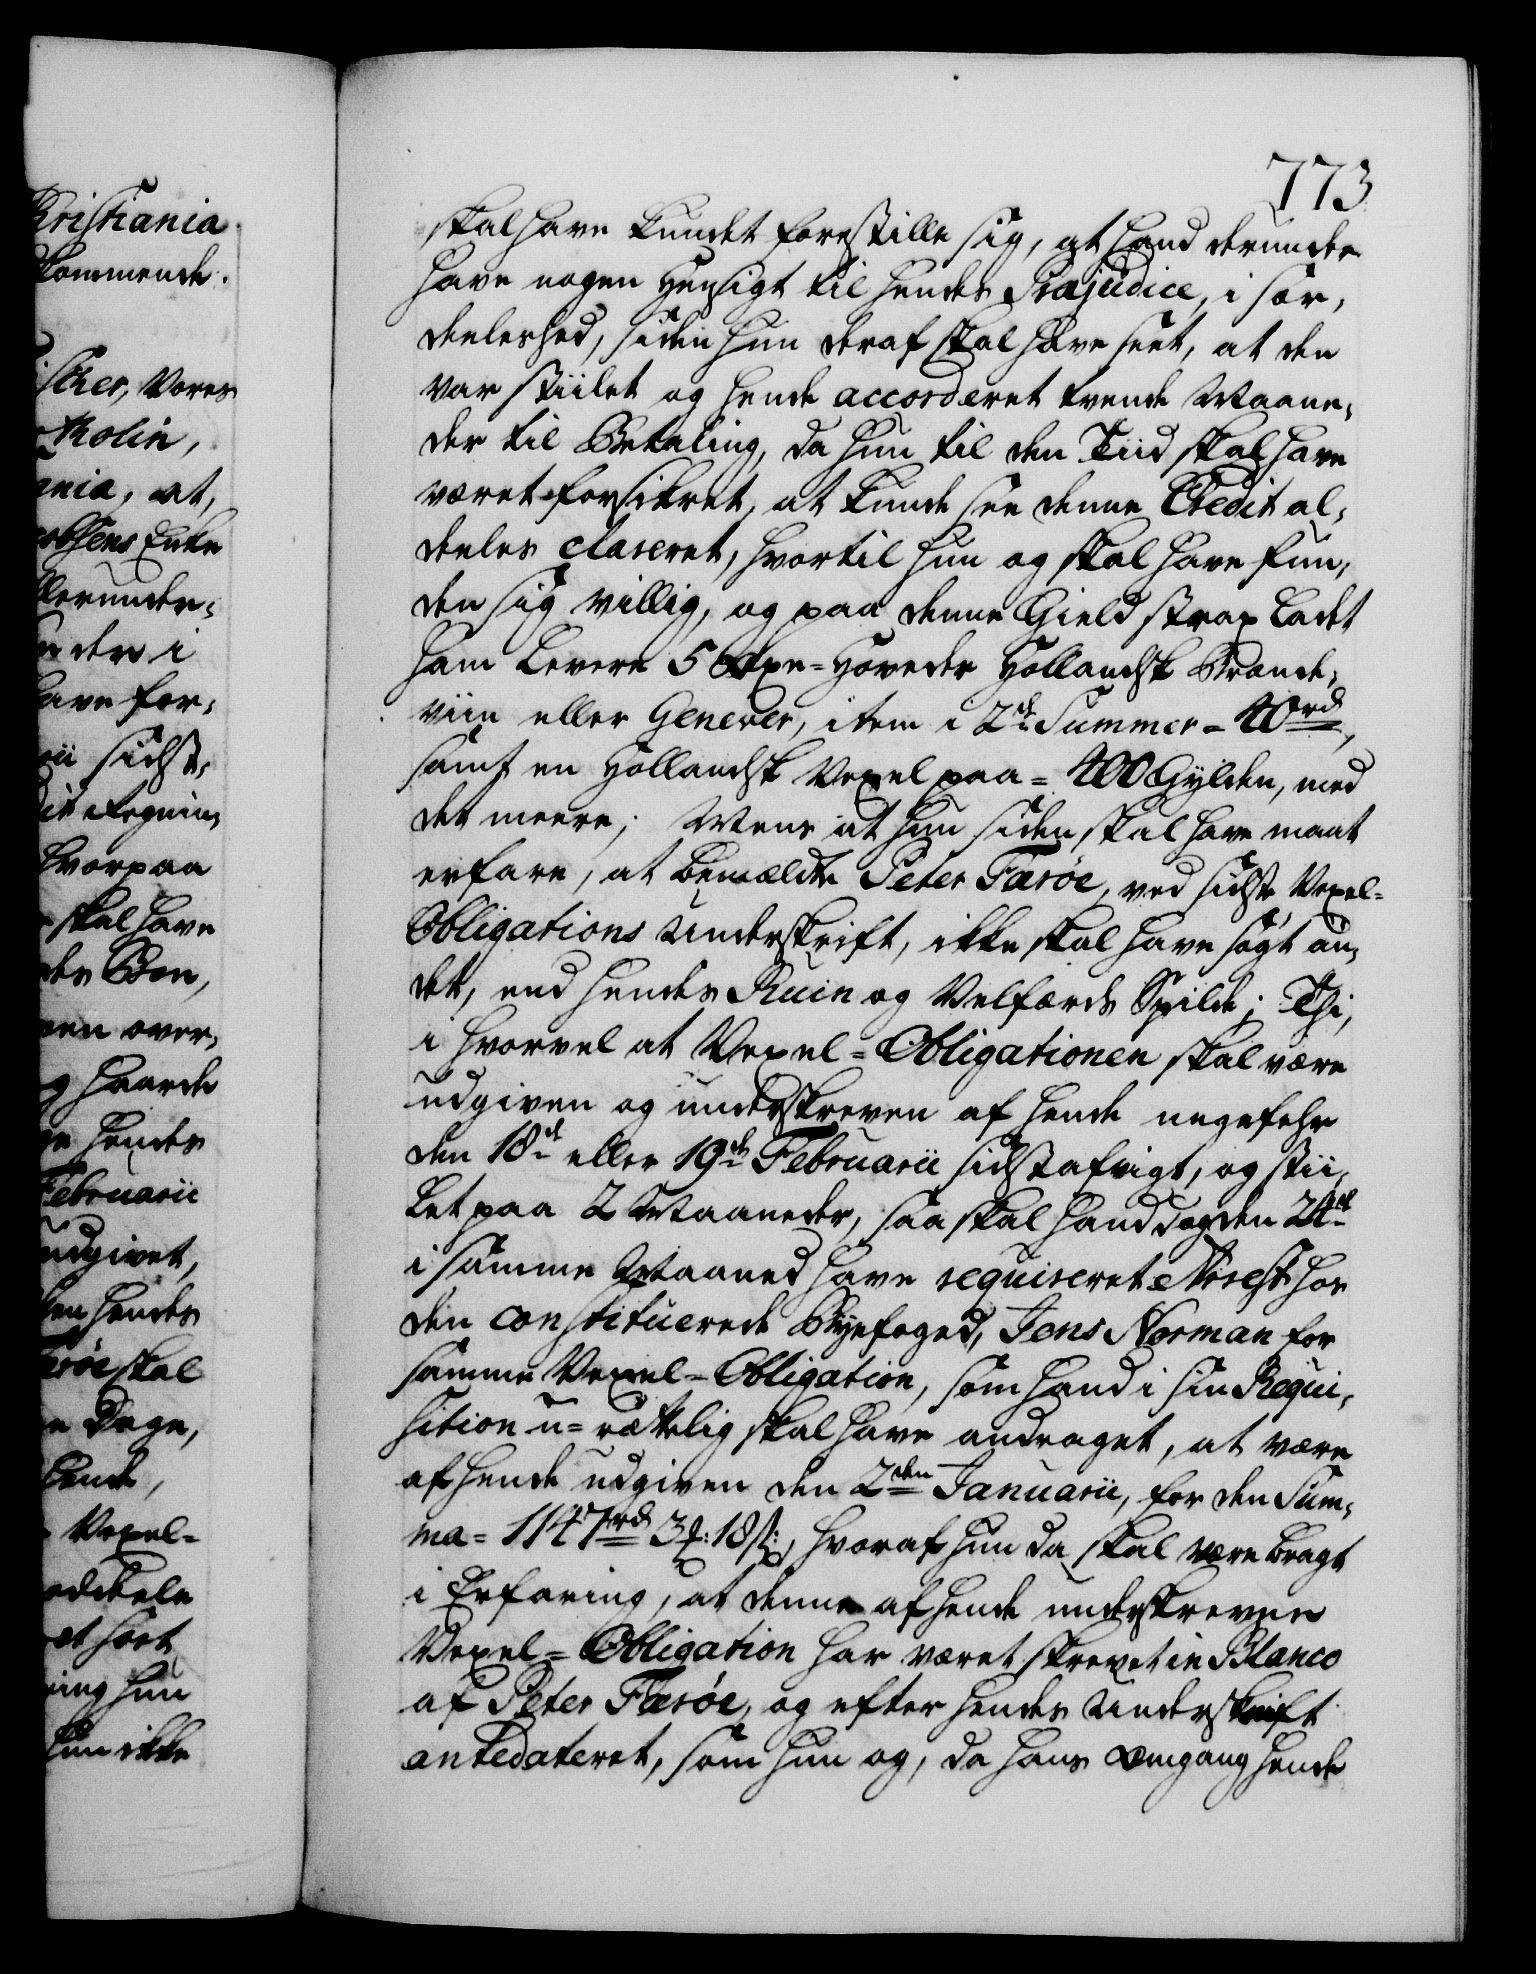 773
skal have kundet forestille sig, at hand derunder
have nogen Hensigt til hendes Præjudice, i sær,
deeleshed, siden hun deraf skal have seet, at den
var stiilet og hende accorderet trende Maane,
der til Betaling, da hun til den Tiid skal have
været forsikret, at kunde see denne Credit al,
deeles clareret, hvortil hun og skal have fun,
den sig villig, og paa denne Gield strax ladet
ham levere 5 Oxe=Hoveder Hollandsk Brænde,
viin eller Genever, item i 2de Summer = 40rd,
samt en Hollandsk Vexel paa = 400 Gylden, med
det meere; Mens at hun siden skal have maat
erfare, at bemældte Peter Færöe, ved sidste Vexel=
Obligations Underskrift, ikke skal have søgt an,
det, end hendes Ruin og Velfærds Spilde; Thi,
i hvorvel at Vexel=Obligationen skal være
udgiven og underskreven af hende ungefehr
den 18de eller 19de Februarii sidstafvigt, og stii,
let paa 2 Maaneder, saa skal hand dog den 24de
i samme Maaned have requireret Arest hos
den constituerede Byefoged, Jens Norman for
samme Vexel=Obligation, som hand i sin Requi,
sition u=rættelig skal have andraget, at være
af hende udgiven den 2den Januarii, for den Sum,
ma = 1147rd 3f: 18s:, hvoraf hun da skal være bragt
i Erfaring, at denne af hende underskreven
Vexel=Obligation har været skrevet in Blanco
af Peter Færöe, og efter hendes Underskrift
antedateret, som hun og, da hans Omgang hende
Christiania
kommende.
ischer, Vores
Molin,
ania, at,
cobsens Enke
llerunder,
nder i
have for,
rii sidst,
dit Regnin,
hvorpaa
skal have
des Bøn,
ven over,
og haarde
ge hendes
Februarii
udgivet,
hendes
Færöe skal
e Dage,
hende,
Vexel=
ning hun
hun ikke